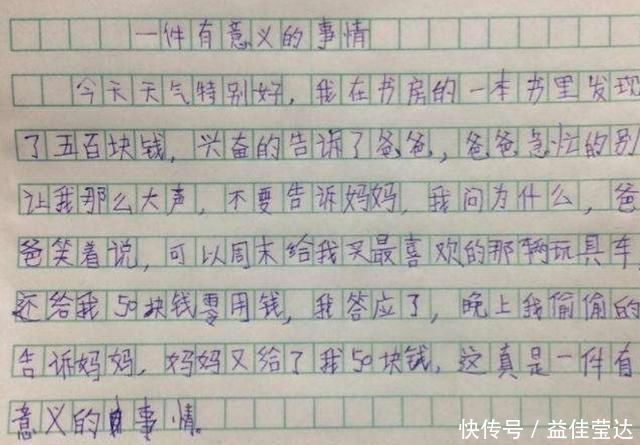 一件有意义的事情
今天天气特别好，我在书房的一本书里发现
了五百块钱，兴奋的告诉了爸爸，爸爸急忙的别
让我那么大声，不要告诉妈妈，我问为什么，爸
爸笑着说，可以周末给我买最喜欢的那辆玩具车，
还给我50块钱零用钱，我答应了，晚上我偷偷的
告诉妈妈，妈妈又给了我50块钱，这真是一件有
意义的事情。
快传号／益佳莹达